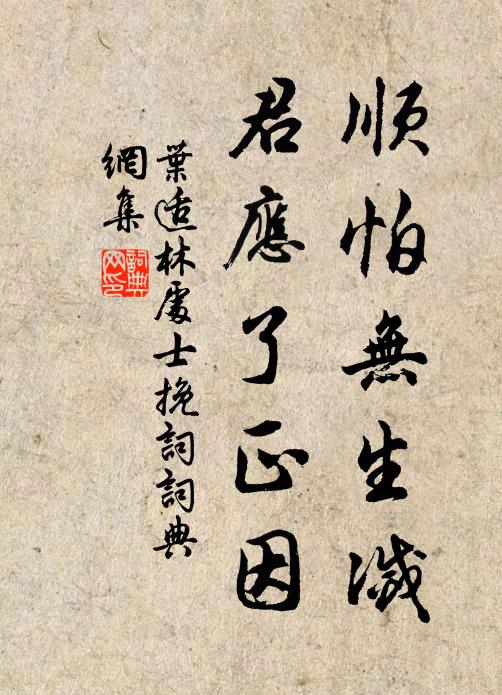 順怕無生滅
君應了正因
葉适林處士挽詞詞典
網集
詞典
网印